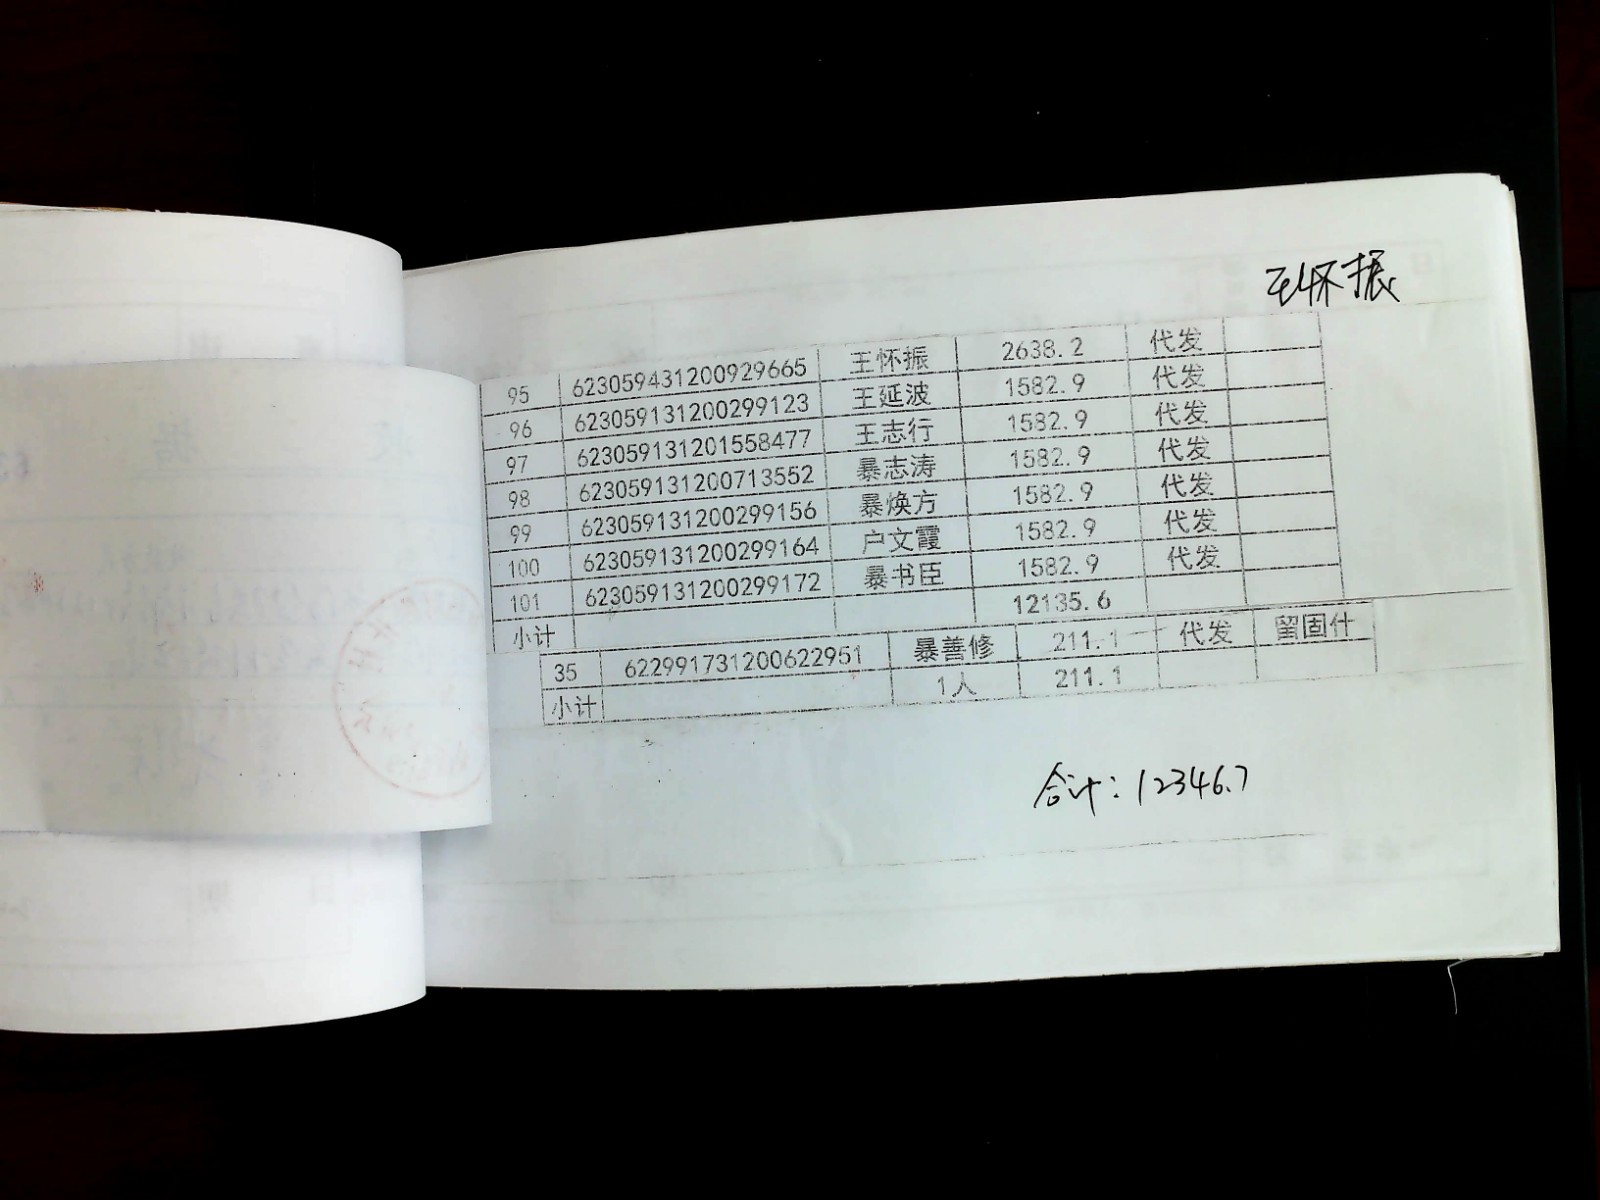 王怀振
95 6230594312009​29665 王怀振 2638.2 代发
96 623059131200299123 王延波 1582.9 代发
97 623059131201558477 王志行 1582.9 代发
98 623059131200713552 暴志涛 1582.9 代发
99 623059131200299156 暴焕方 1582.9 代发
100 623059131200299164 户文霞 1582.9 代发
101 623059131200299172 暴书臣 1582.9 代发
小计 12135.6
35 622991731200622951 暴善修 211.1 代发 留固什
小计 1人 211.1
合计：12346.7